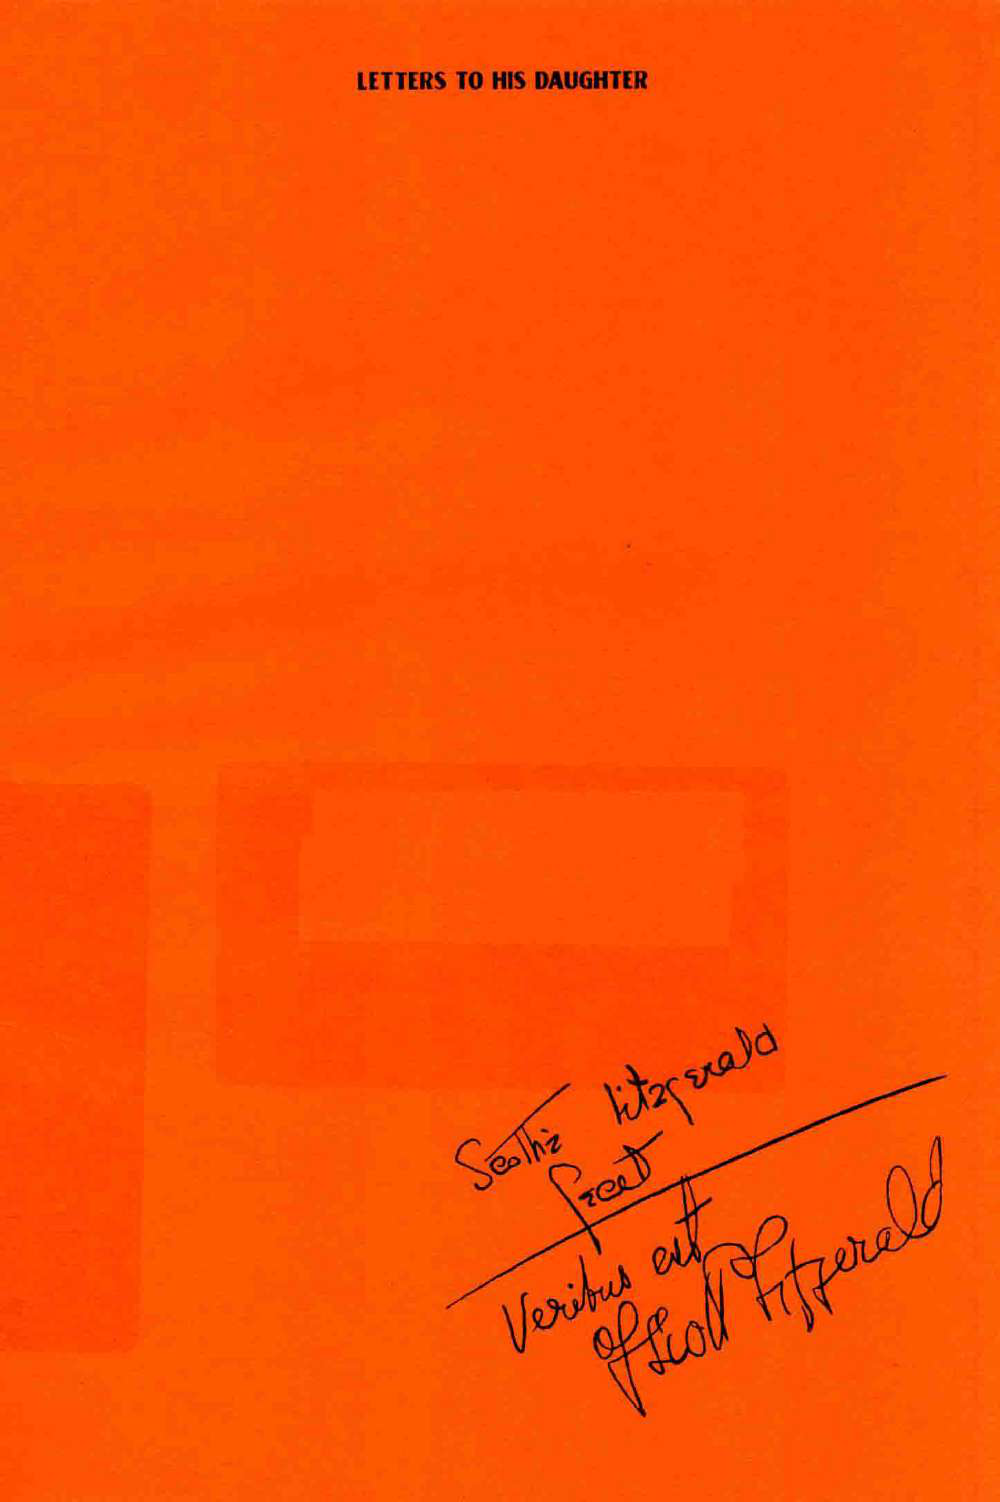 LETTERS TO HIS DAUGHTER
Scottie Fitzgerald
fecit
Veribus est
Scott Fitzgerald